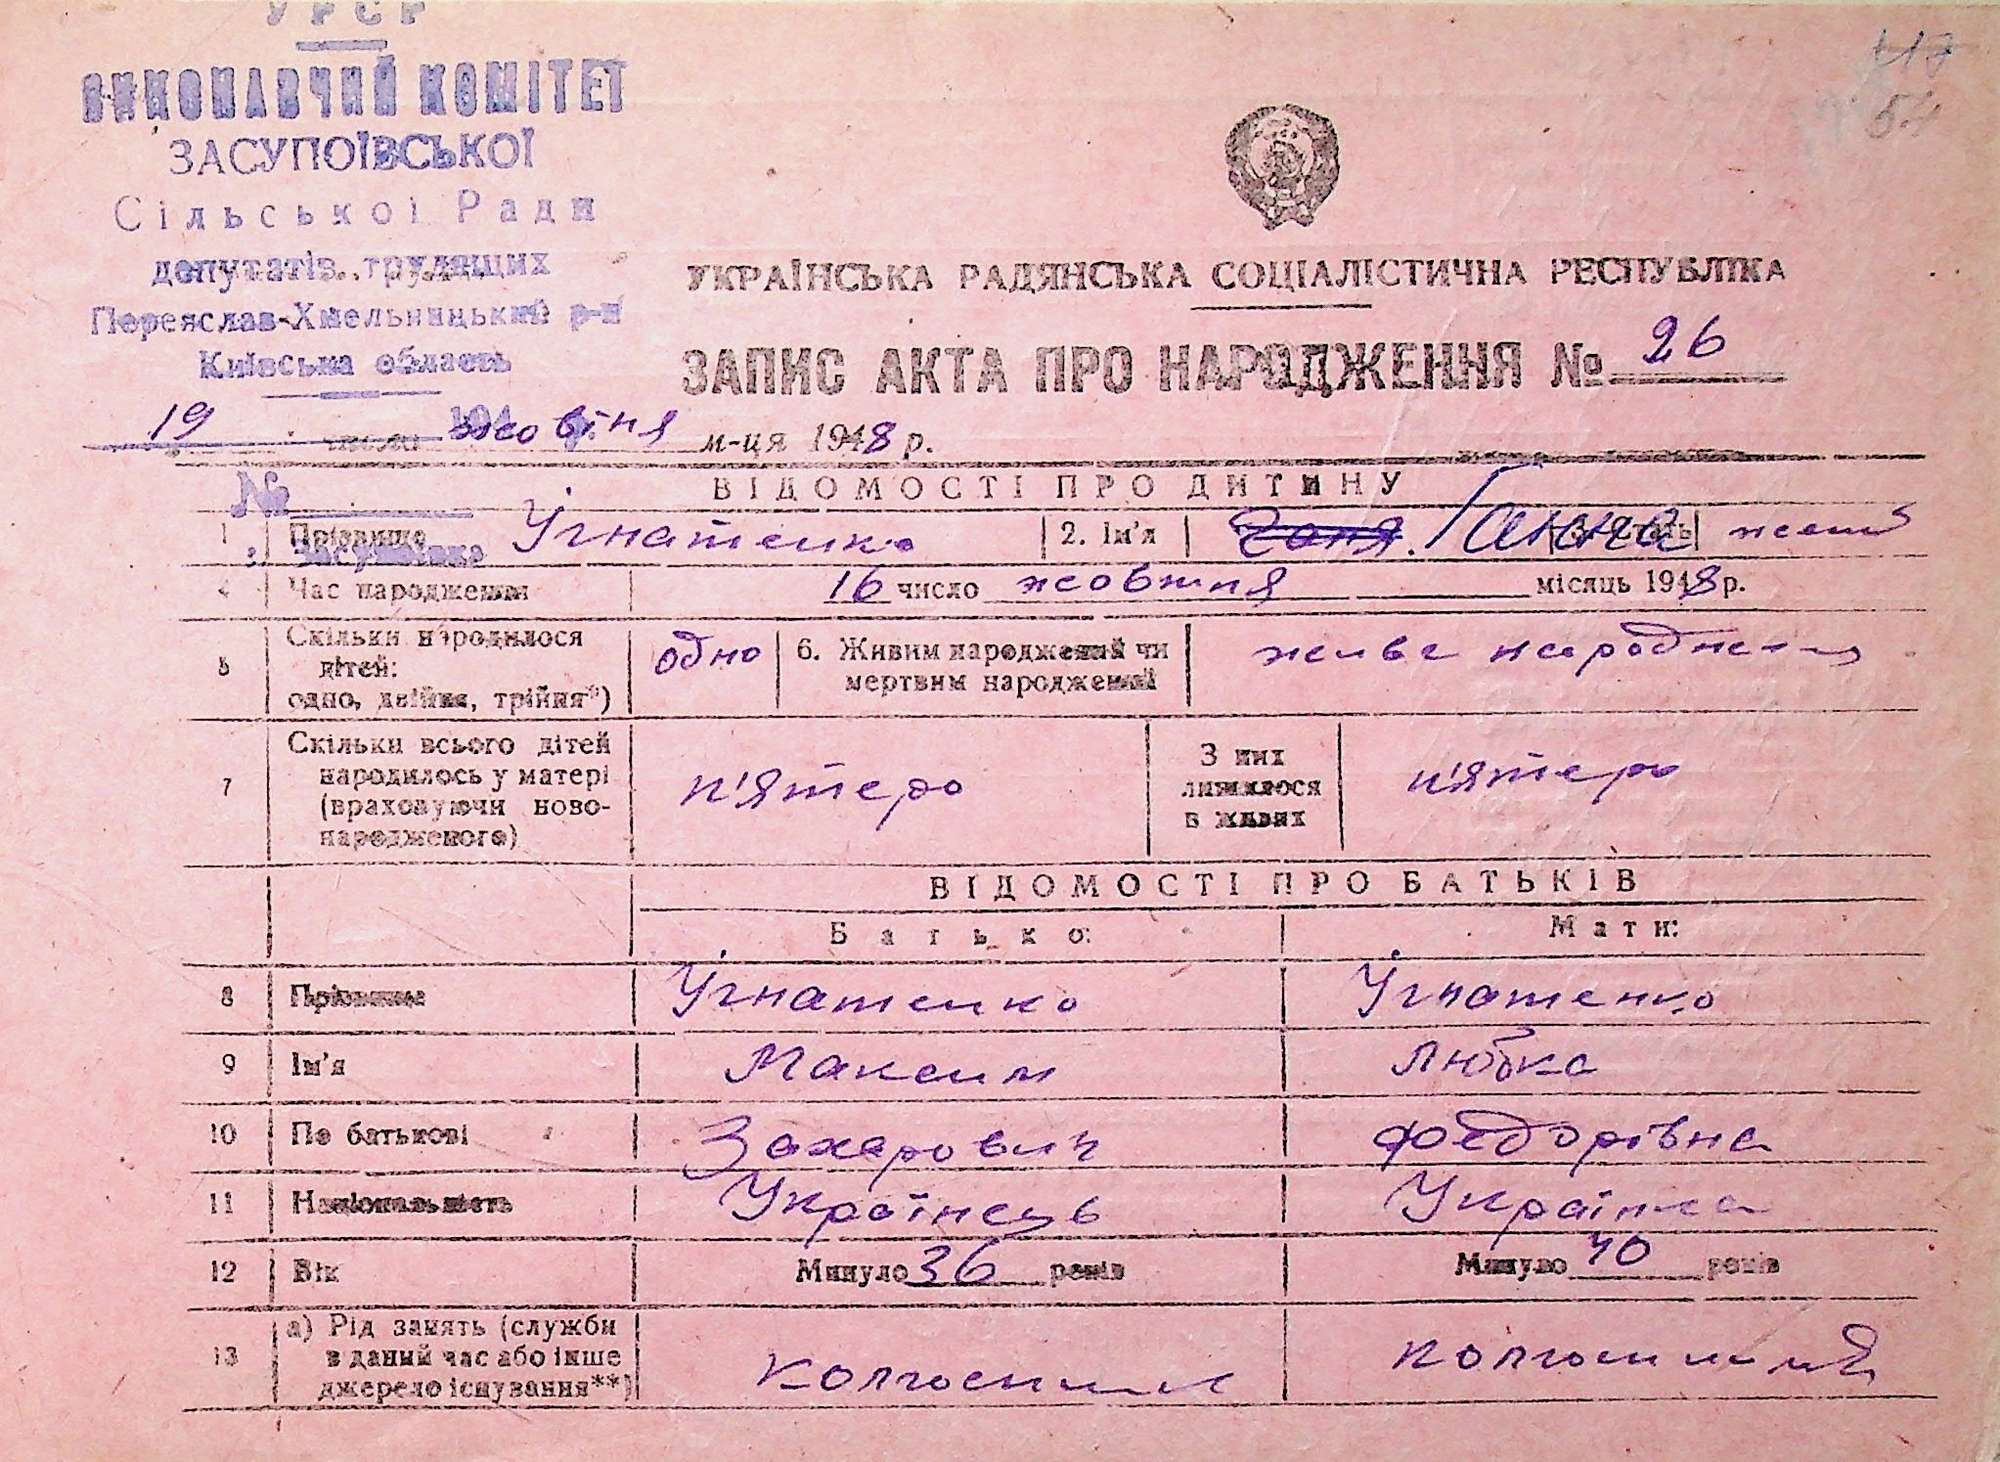 УРСР
ВИКОНАВЧИЙ КОМІТЕТ
ЗАСУПОЇВСЬКОЇ
Сільської Ради
депутатів трудящих
Переяслав-Хмельницький р-н
Київська область
54
УКРАЇНСЬКА РАДЯНСЬКА СОЦІАЛІСТИЧНА РЕСПУБЛІКА
ЗАПИС АКТА ПРО НАРОДЖЕННЯ № 26
19 числа жовтня м-ця 1948 р.
№
ВІДОМОСТІ ПРО ДИТИНУ
1 Прізвище Ігнатенко 2. Ім'я Ганна 3. Стать жен
4 Час народження 16 число жовтня місяць 1948 р.
5 Скільки народилося дітей: одно, двійня, трійня*) одно 6. Живим народжений чи мертвим народжений живе народження
7 Скільки всього дітей народилось у матері (враховуючи новонародженого) п'ятеро З них лишилося в живих п'ятеро
ВІДОМОСТІ ПРО БАТЬКІВ
Батько: Мати:
8 Прізвище Ігнатенко Ігнатенко
9 Ім'я Максим Любка
10 По батькові Захарович Федорівна
11 Національність Українець Українка
12 Вік Минуло 36 років Минуло 40 років
13 а) Рід занять (служби в даний час або інше джерело існування**) колгоспник колгоспниця